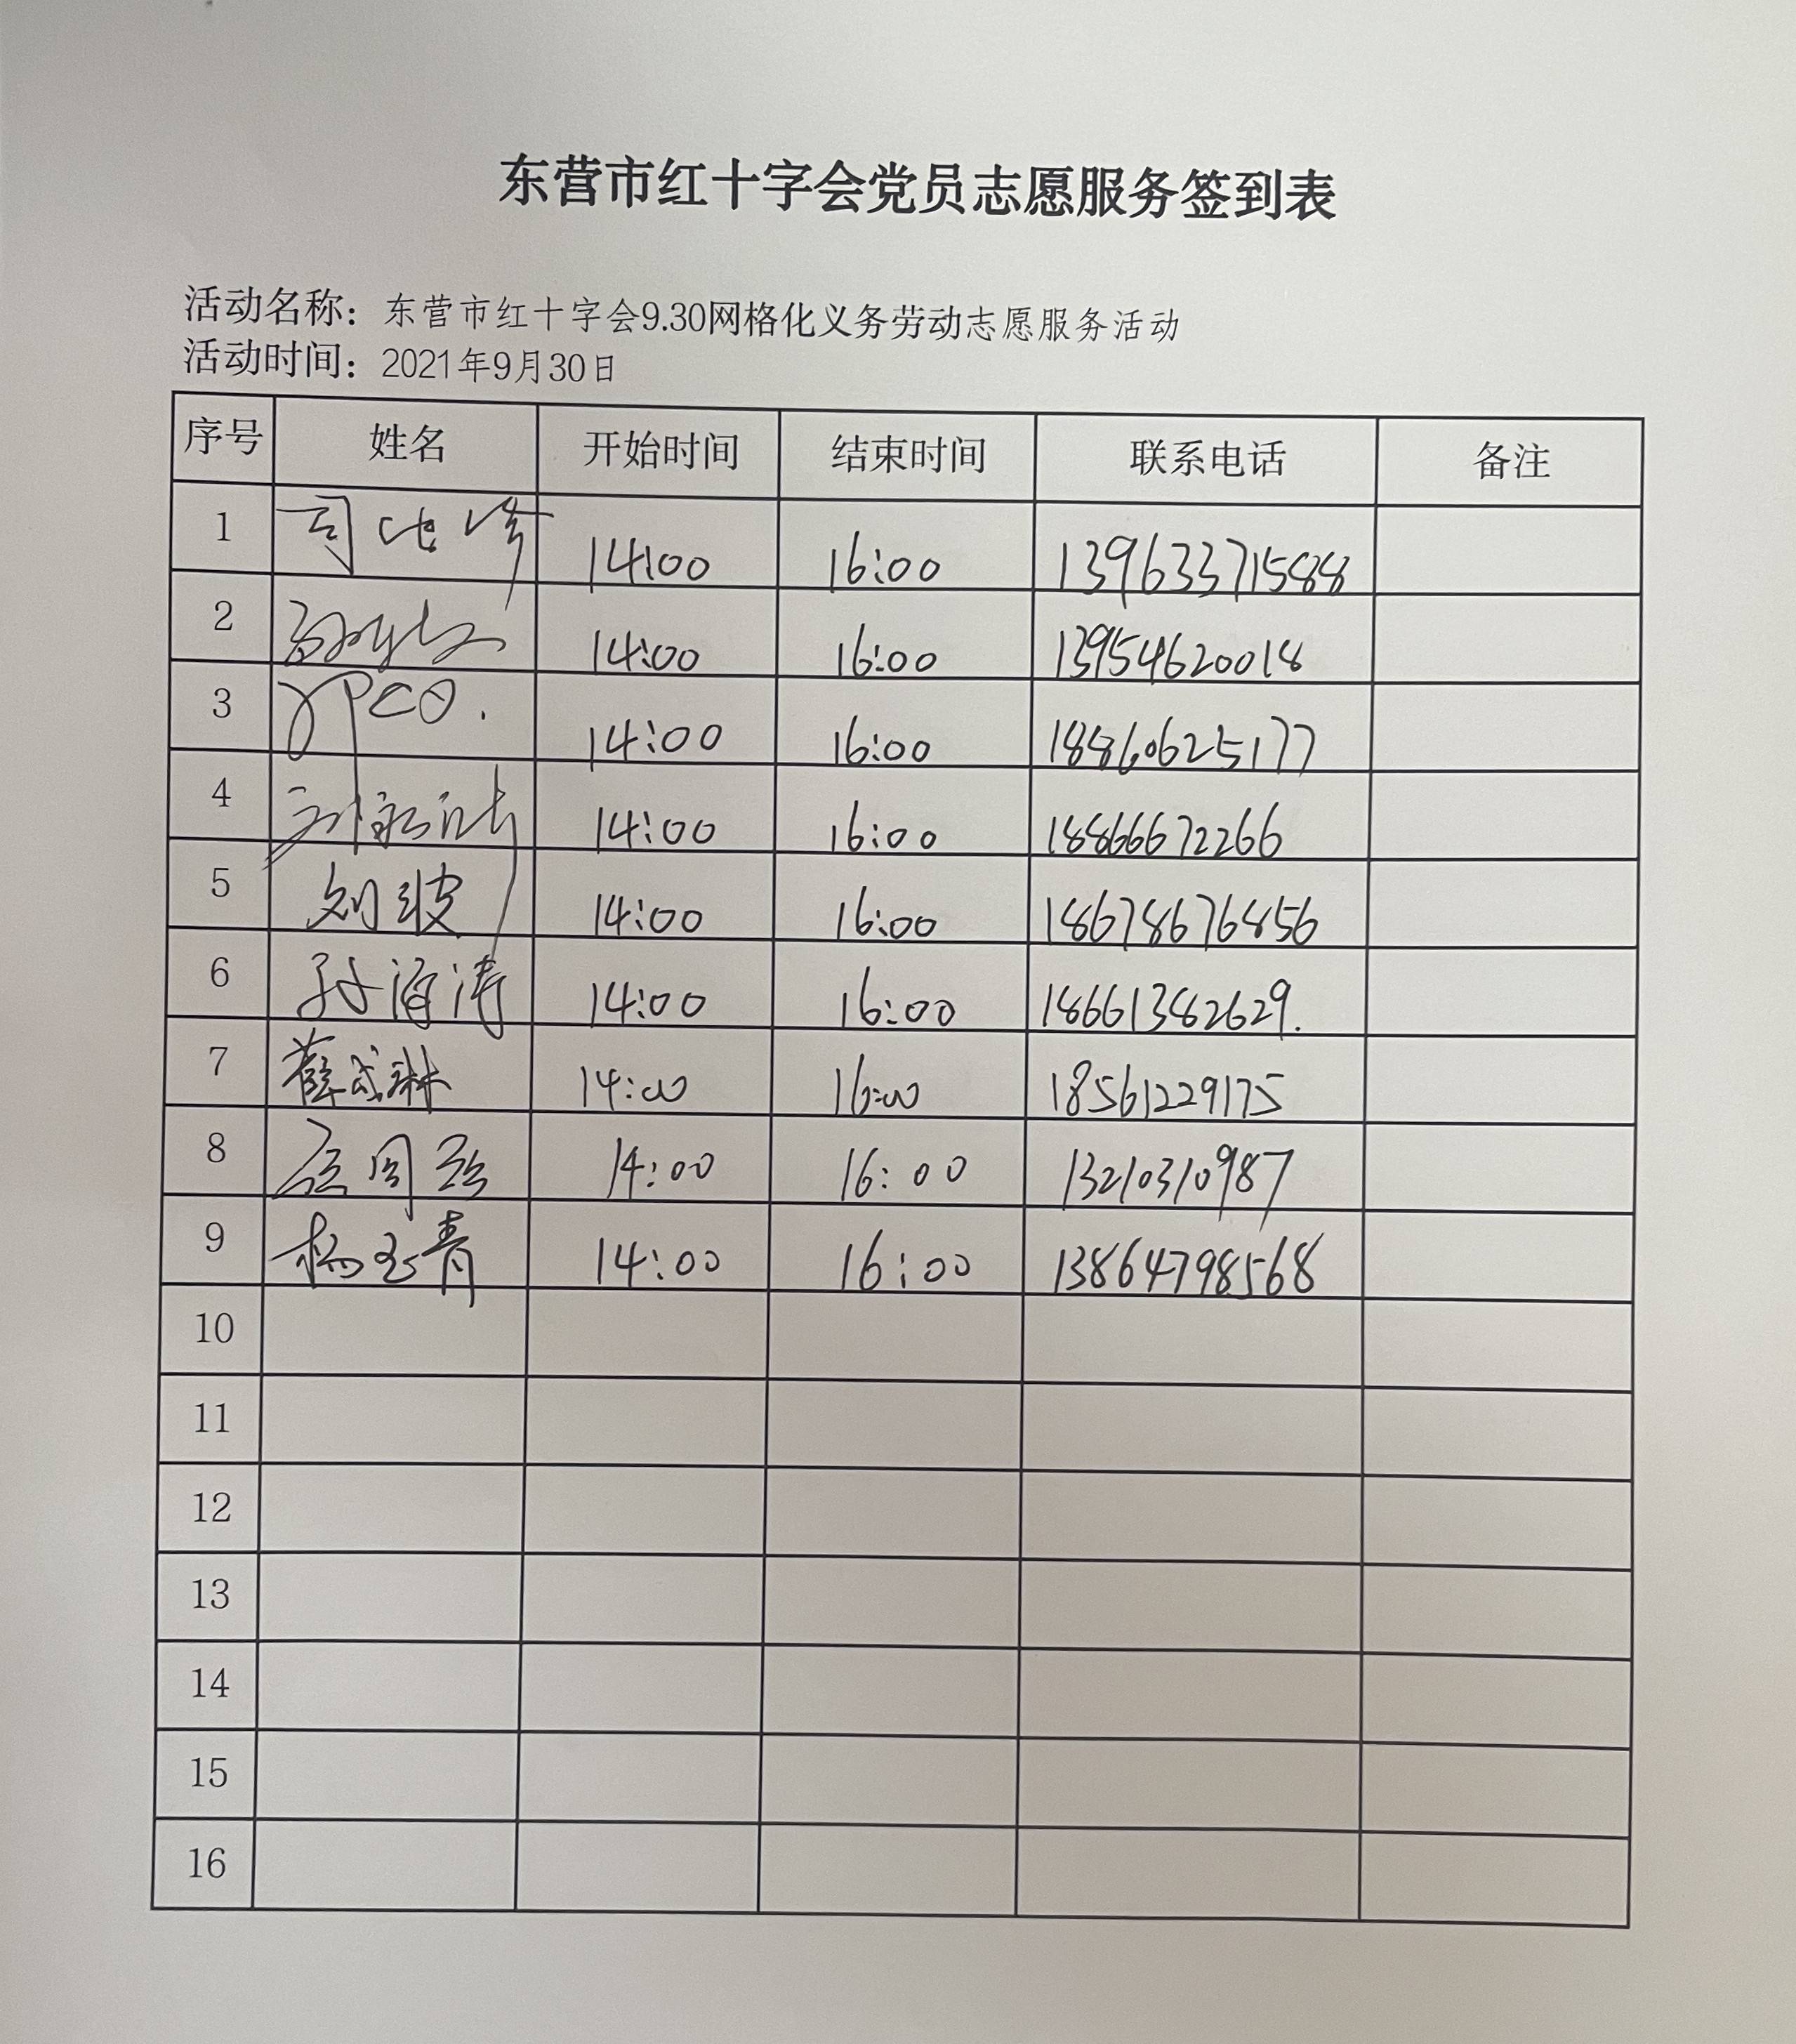 东营市红十字会党员志愿服务签到表
活动名称：东营市红十字会9.30网格化义务劳动志愿服务活动
活动时间：2021年9月30日
序号 姓名 开始时间 结束时间 联系电话 备注
1 司 14:00 16:00 13963371588
2 14:00 16:00 13954620018
3 14:00 16:00 18860625177
4 14:00 16:00 18866672266
5 刘波 14:00 16:00 18678676856
6 孙海涛 14:00 16:00 18661382629.
7 薛成琳 14:00 16:00 18561229175
8 14:00 16:00 13210310987
9 杨玉青 14:00 16:00 13864798568
10
11
12
13
14
15
16